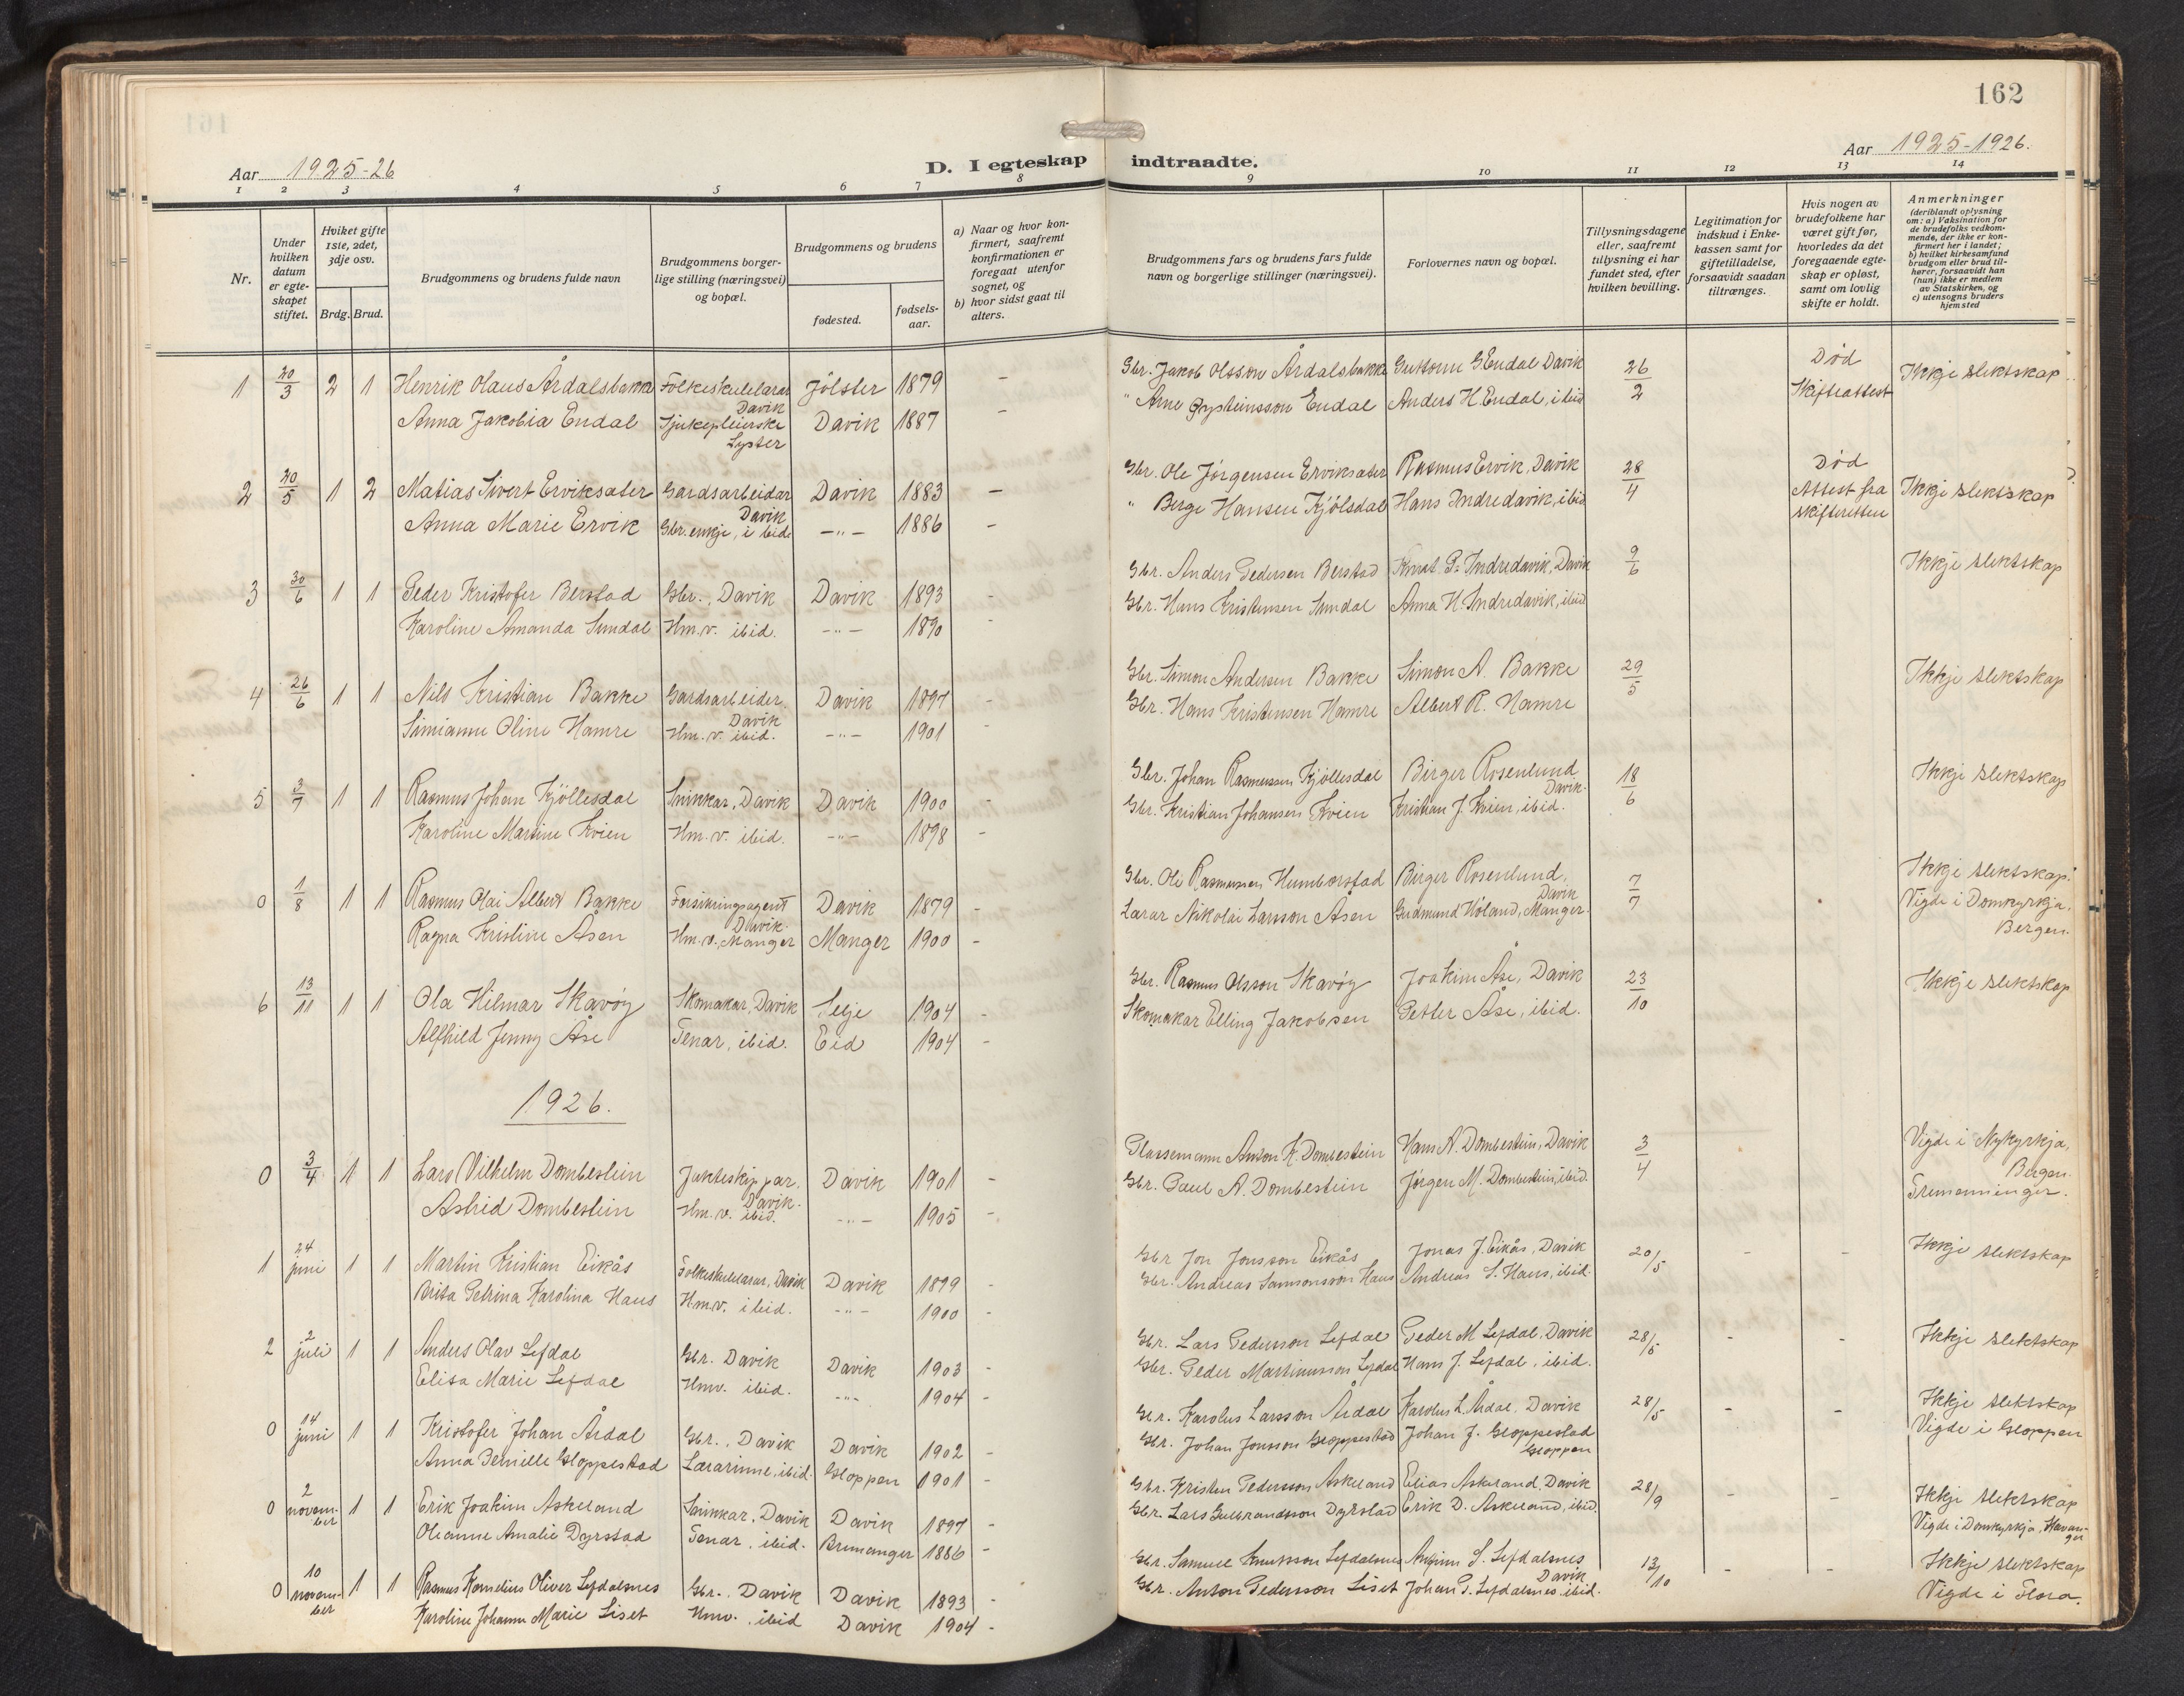 162
Aar 1925-26
D. I egteskap indtraadte.
Aar 1925-1926.
1 2 3 4 5 6 7 8 9 10 11 12 13 14
Nr.
Under hvilken datum er egteskapet stiftet.
Hviket gifte 1ste, 2det, 3dje osv.
Brdg. Brud.
Brudgommens og brudens fulde navn
Brudgommens borgerlige stilling (næringsvei) og bopæl.
Brudgommens og brudens
fødested.
fødselsaar.
a) Naar og hvor konfirmert, saafremt konfirmationen er foregaat utenfor sognet, og
b) hvor sidst gaat til alters.
Brudgommens fars og brudens fars fulde navn og borgerlige stillinger (næringsvei).
Forlovernes navn og bopæl.
Tillysningsdagene eller, saafremt tillysning ei har fundet sted, efter hvilken bevilling.
Legitimation for indskud i Enkekassen samt for giftetilladelse, forsaavidt saadan tiltrænges.
Hvis nogen av brudefolkene har været gift før, hvorledes da det foregaaende egteskap er opløst, samt om lovlig skifte er holdt.
Anmerkninger (deriblandt oplysning om: a) Vaksination for de brudefolks vedkommende, der ikke er konfirmert her i landet; b) hvilket kirkesamfund brudgom eller brud tilhører, forsaavidt han (hun) ikke er medlem av Statskirken, og c) utensogns bruders hjemsted
1 20/3 2 1 Henrik Olaus Årdalsbakke Folkeskulelærar Davik Jölster 1879 - Gbr. Jakob Olsson Årdalsbakke Guttorm G. Endal Davik 26/2 Død Skifteattest Ikkje slektskap
Anna Jakobia Endal Sjukepleierske Lyster Davik 1887 - " Arne Øysteinsson Endal Anders H. Endal, ibid
2 20/5 1 2 Matias Sivert Erviksæter Gardsarbeidar Davik Davik 1883 - Gbr. Ole Jörgensen Erviksæter Rasmus Ervik, Davik 28/4 Død Attest fra skifteretten Ikkje slektskap
Anna Marie Ervik Gbr. enkje, ibid. -"- 1886 - " Berge Hansen Kjölsdal Hans Indredavik, ibid
3 30/6 1 1 Peder Kristofer Berstad Gbr., Davik Davik 1893 - Gbr. Anders Pedersen Berstad Knut P. Indredavik, Davik 9/6 Ikkje slektskap
Karoline Amanda Sundal Hm.v. ibid. -"- 1890 - Gbr. Hans Kristensen Sundal Anna H. Indredavik, ibid
4 26/6 1 1 Nils Kristian Bakke Gardsarbeider. Davik Davik 1897 - Gbr. Simon Andersen Bakke Simon A. Bakke 29/5 Ikkje slektskap
Simianne Oline Hamre Hm.v. ibid. -"- 1901 Gbr. Hans Kristensen Hamre Albert R. Hamre
5 3/7 1 1 Rasmus Johan Kjöllesdal Snikkar, Davik Davik 1900 - Gbr. Johan Rasmussen Kjöllesdal Birger Rosenlund Davik. 18/6 Ikkje slektskap
Karoline Martine Kvien Hm.v. ibid. -"- 1898 - Gbr. Kristian Johansen Kvien Kristian J. Kvien, ibid.
0 1/8 1 1 Rasmus Olai Albert Bakke Forsikringsagent Davik. Davik 1879 - Gbr. Ole Rasmussen Humborstad Birger Rosenlund, Davik 7/7 Ikkje slektskap. Vigde i Domkyrkja, Bergen.
Ragna Kristine Åsen Hm.v. Manger Manger 1900 - Lærar Nikolai Larsson Åsen Gudmund Höland, Manger.
6 13/11 1 1 Ola Hilmar Skavöy Skomakar, Davik Selje 1904 - Gbr. Rasmus Olsson Skavöy Joakim Åse, Davik 23/10 Ikkje slektskap
Alfhild Jenny Åse Tenar, ibid. Eid 1904 - Skomakar Elling Jakobsen Petter Åse, ibid.
1926.
0 3/4 1 1 Lars Vilhelm Dombestein Jakteskippar. Davik. Davik 1901 - Plassemann Anton K. Dombestein Hans A. Dombestein, Davik 3/4 Vigde i Nykyrkja, Bergen. Tremenninger.
Astrid Dombestein Hm.v. ibid. -"- 1905 - Gbr. Paul A. Dombestein Jörgen M. Dombestein, ibid.
1 24 juni 1 1 Martin Kristian Eikås Folkeskulelærar, Davik Davik 1899 Gbr Jon Jonsson Eikås Jonas J. Eikås, Davik 20/5 - - Ikkje slektskap
Brita Petrina Karolina Haus Hm.v. ibid. -"- 1900 - Gbr. Andreas Samsonsson Haus Andreas S. Haus, ibid.
2 2 juli 1 1 Anders Olav Lefdal Gbr. Davik Davik 1903 - Gbr. Lars Pedersson Lefdal Peder M Lefdal, Davik 28/5 - - Ikkje slektskap
Elisa Marie Lefdal Hmv. ibid. -"- 1904 - Gbr. Peder Martinusson Lefdal Hans J. Lefdal, ibid.
0 14 juni 1 1 Kristofer Johan Årdal Gbr., Davik Davik 1902 - Gbr. Karolus Larsson Årdal Karolus L. Årdal, Davik 28/5 - - Ikkje slektskap Vigde i Gloppen
Anna Pernille Gloppestad Lærarinne, ibid. Gloppen 1901 - Gbr. Johan Jonsson Gloppestad Johan J. Gloppestad Gloppen
0 2 november 1 1 Erik Joakim Askeland Snikkar, Davik Davik 1897 - Gbr. Kristen Pedersson Askeland Elias Askeland, Davik 28/9 - - Ikkje slektskap Vigde i Domkyrkja, Stavanger
Oleanne Amalie Dyrstad Tenar, ibid. Bremanger 1886 - Gbr. Lars Gulbrandsson Dyrstad Erik D. Askeland, ibid.
0 10 november 1 1 Rasmus Kornelius Oliver Lefdalsnes Gbr., Davik Davik 1893 - Gbr. Samuel Knutsson Lefdalsnes S. Lefdalsnes Davik 13/10 - - Ikkje slektskap Vigde i Flora.
Karoline Johanne Marie Liset Hmv. ibid Davik 1904 - Gbr. Anton Pedersson Liset Johan S. Lefdalsnes, ibid.